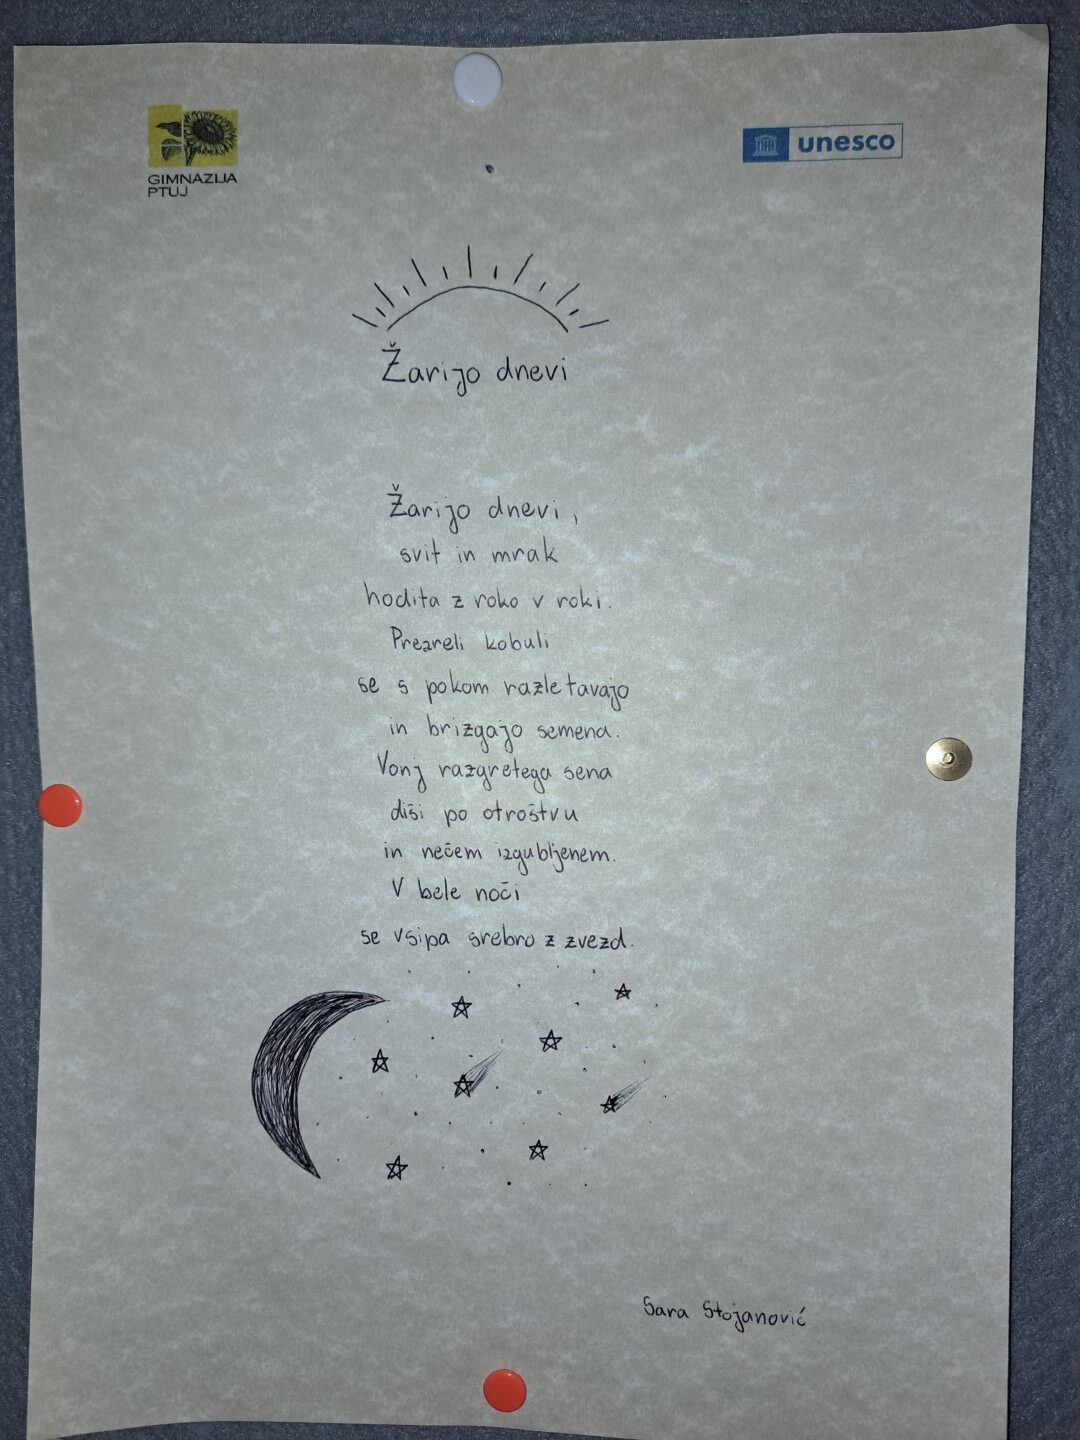 GIMNAZIJA
PTUJ
unesco
Žarijo dnevi
Žarijo dnevi,
svit in mrak
hodita z roko v roki.
Prezreli kobuli
se s pokom razletavajo
in brizgajo semena.
Vonj razgretega sena
diši po otroštvu
in nečem izgubljenem.
V bele noči
se vsipa srebro z zvezd.
Sara Stojanović